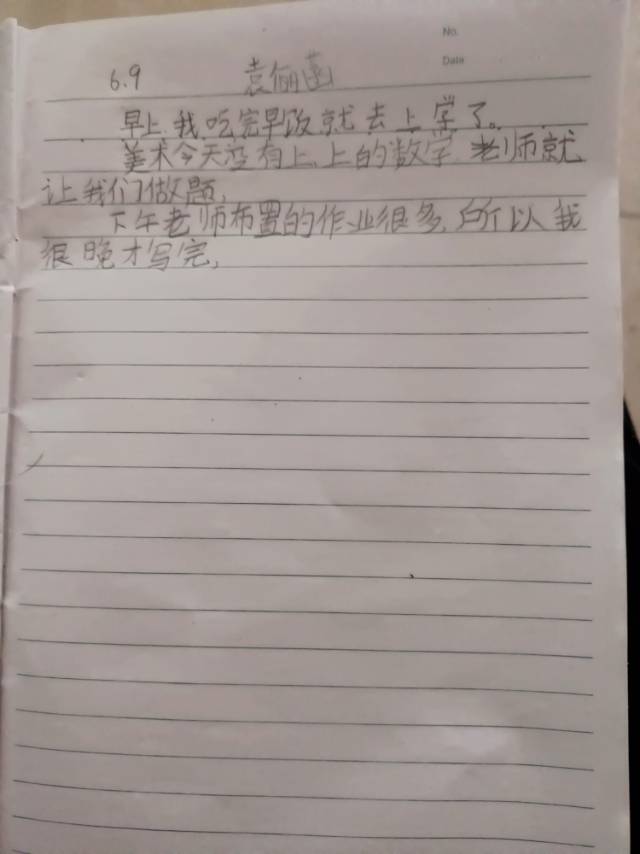 No.
Date
6.9 袁俪菡
早上,我吃完早饭就去上学了。
美术今天没有上,上的数学,老师就
让我们做题,
下午老师布置的作业很多,所以我
很晚才写完,